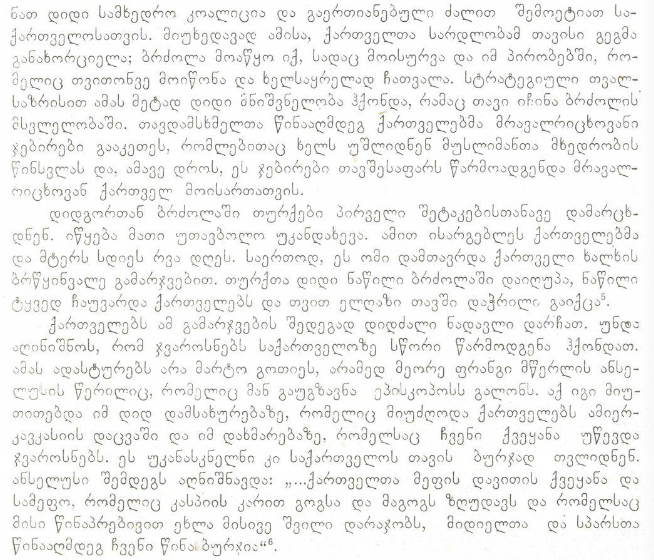 ნათ დიდი სამხედრო კოალიცია და გაერთიანებული ძალით შემოეტიათ სა-
ქართველოსათვის. მიუხედავად ამისა, ქართველთა სარდლობამ თავისი გეგმა
განახორციელა; ბრძოლა მოაწყო იქ, სადაც მოისურვა და იმ პირობებში, რო-
მელიც თვითონვე მოიწონა და ხელსაყრელად ჩათვალა. სტრატეგიული თვალ-
საზრისით ამას მეტად დიდი მნიშვნელობა ჰქონდა, რამაც თავი იჩინა ბრძოლის
მსვლელობაში. თავდამსხმელთა წინააღმდეგ ქართველებმა მრავალრიცხოვანი
ჯებირები გააკეთეს, რომლებითაც ხელს უშლიდნენ მუსლიმანთა მხედრობის
წინსვლას და, ამავე დროს, ეს ჯებირები თავშესაფარს წარმოადგენდა მრავალ-
რიცხოვან ქართველ მოისართათვის.
დიდგორთან ბრძოლაში თურქები პირველი შეტაკებისთანავე დამარცხ-
დნენ. იწყება მათი უთავბოლო უკანდახევა. ამით ისარგებლეს ქართველებმა
და მტერს სდიეს რვა დღეს. საერთოდ, ეს ომი დამთავრდა ქართველი ხალხის
ბრწყინვალე გამარჯვებით. თურქთა დიდი ნაწილი ბრძოლაში დაიღუპა, ნაწილი
ტყვედ ჩაუვარდა ქართველებს და თვით ელღაზი თავში დაჭრილი გაიქცა⁵.
ქართველებს ამ გამარჯვების შედეგად დიდძალი ნადავლი დარჩათ. უნდა
აღინიშნოს, რომ ჯვაროსნებს საქართველოზე სწორი წარმოდგენა ჰქონდათ.
ამას ადასტურებს არა მარტო გოთიეს, არამედ მეორე ფრანგი მწერლის ანსე-
ლუსის წერილიც, რომელიც მან გაუგზავნა ეპისკოპოსს გალონს. აქ იგი მიუ-
თითებდა იმ დიდ დამსახურებაზე, რომელიც მიუძღოდა ქართველებს ამიერ-
კავკასიის დაცვაში და იმ დახმარებაზე, რომელსაც ჩვენი ქვეყანა უწევდა
ჯვაროსნებს. ეს უკანასკნელნი კი საქართველოს თავის ბურჯად თვლიდნენ.
ანსელუსი შემდეგს აღნიშნავდა: „...ქართველთა მეფის დავითის ქვეყანა და
სამეფო, რომელიც კასპიის კარით გოგსა და მაგოგს ზღუდავს და რომელსაც
მისი წინაპრებივით ეხლა მისივე შვილი დარაჯობს, მიდიელთა და სპარსთა
წინააღმდეგ ჩვენი წინა ბურჯია“⁶.